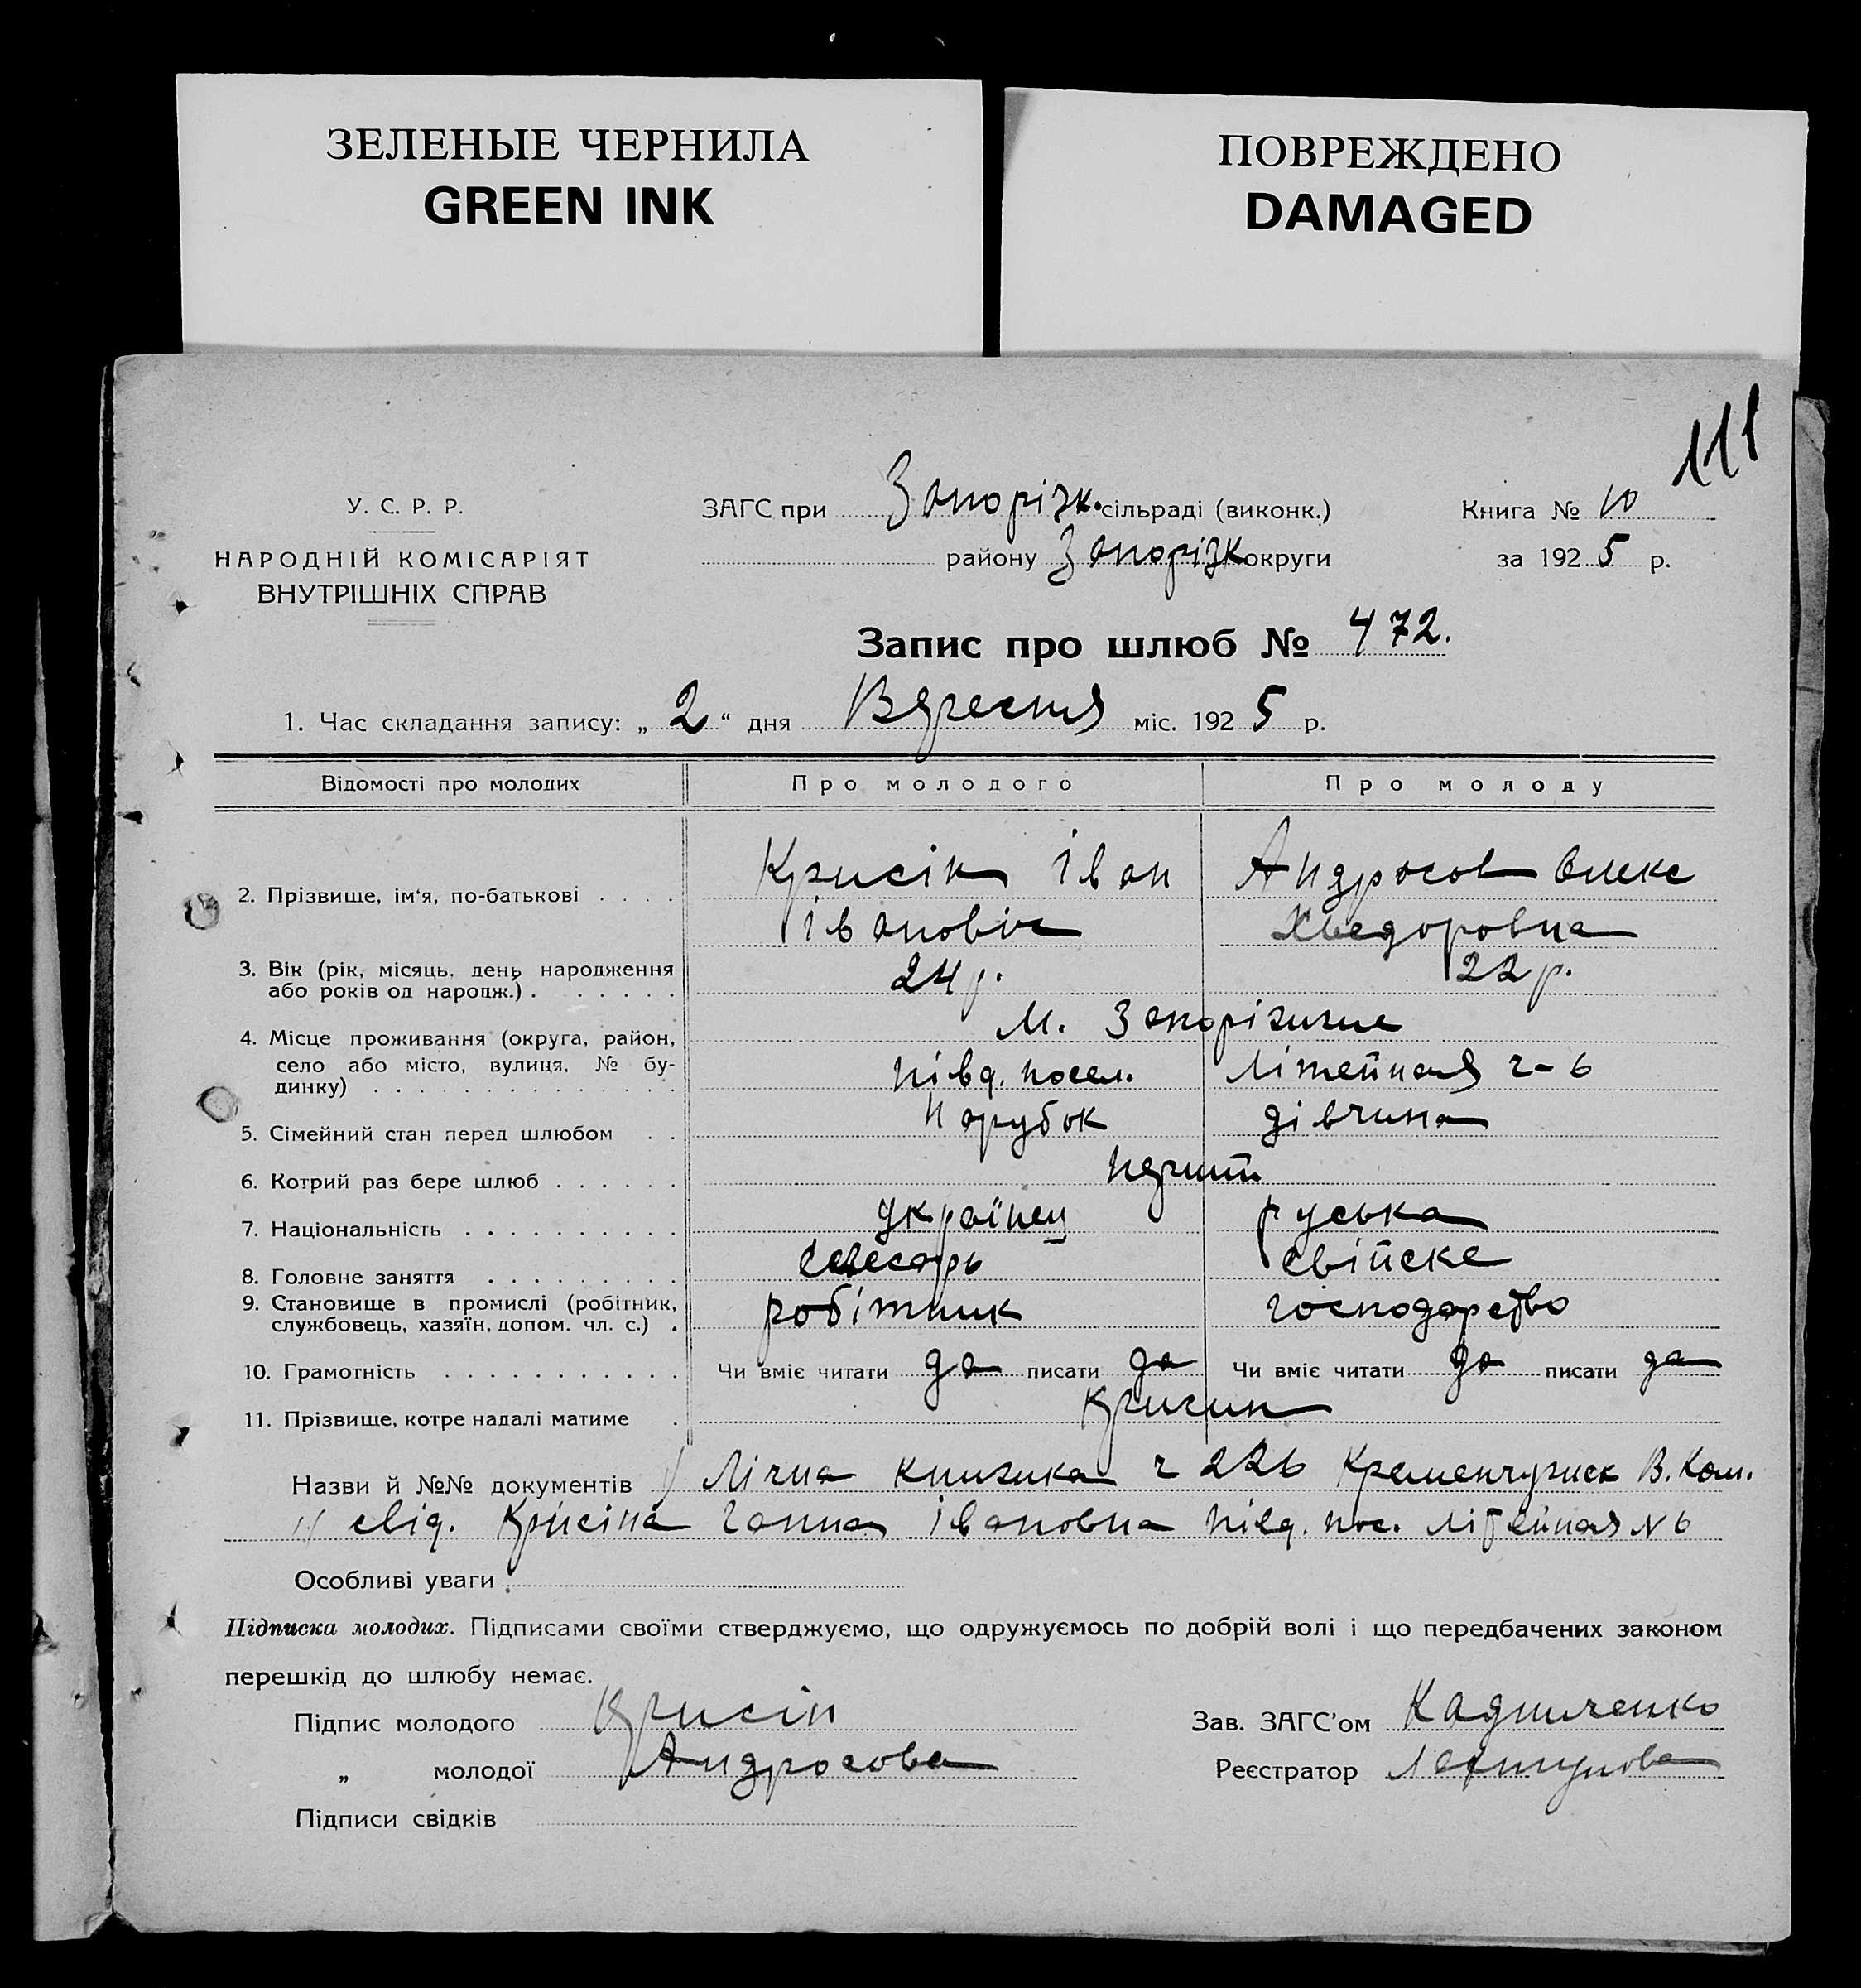 ЗЕЛЕНЫЕ ЧЕРНИЛА
GREEN INK
ПОВРЕЖДЕНО
DAMAGED
111
У. С. Р. Р.
НАРОДНІЙ КОМІСАРІЯТ
ВНУТРІШНІХ СПРАВ
ЗАГС при Запорізк. сільраді (виконк.)
району Запорізк округи
Книга № 10
за 1925 р.
Запис про шлюб № 472.
1. Час складання запису: „2“ дня Вересня міс. 1925 р.
Відомості про молодих Про молодого Про молоду
2. Прізвище, ім'я, по-батькові . . . . Крисін Іван Андросов Олекс
Івановіч Хведоровна
3. Вік (рік, місяць, день народження
або років од народж.) . . . . . . 24 р. 22 р.
4. Місце проживання (округа, район,
село або місто, вулиця, № будинку) . . . м. Запоріжжє
півд. посел. Літейная ч-6
5. Сімейний стан перед шлюбом . . Парубок дівчина
6. Котрий раз бере шлюб . . . . . . перший
7. Національність . . . . . . . . . . українец руська
8. Головне заняття . . . . . . . . . слесарь свійске
9. Становище в промислі (робітник,
службовець, хазяїн, допом. чл. с.) . робітник господарство
10. Грамотність . . . . . . . . . . . Чи вміє читати да писати да Чи вміє читати да писати да
11. Прізвище, котре надалі матиме .
Назви й №№ документів Лічна книжка ч 226 В. Ком.
свід. Крисіна Ганна Івановна півд. пос. Літейная № 6
Особливі уваги
Підписка молодих. Підписами своїми стверджуємо, що одружуємось по добрій волі і що передбачених законом
перешкід до шлюбу немає.
Підпис молодого Крисін
„ молодої Андросова
Підписи свідків
Зав. ЗАГС'ом
Реєстратор